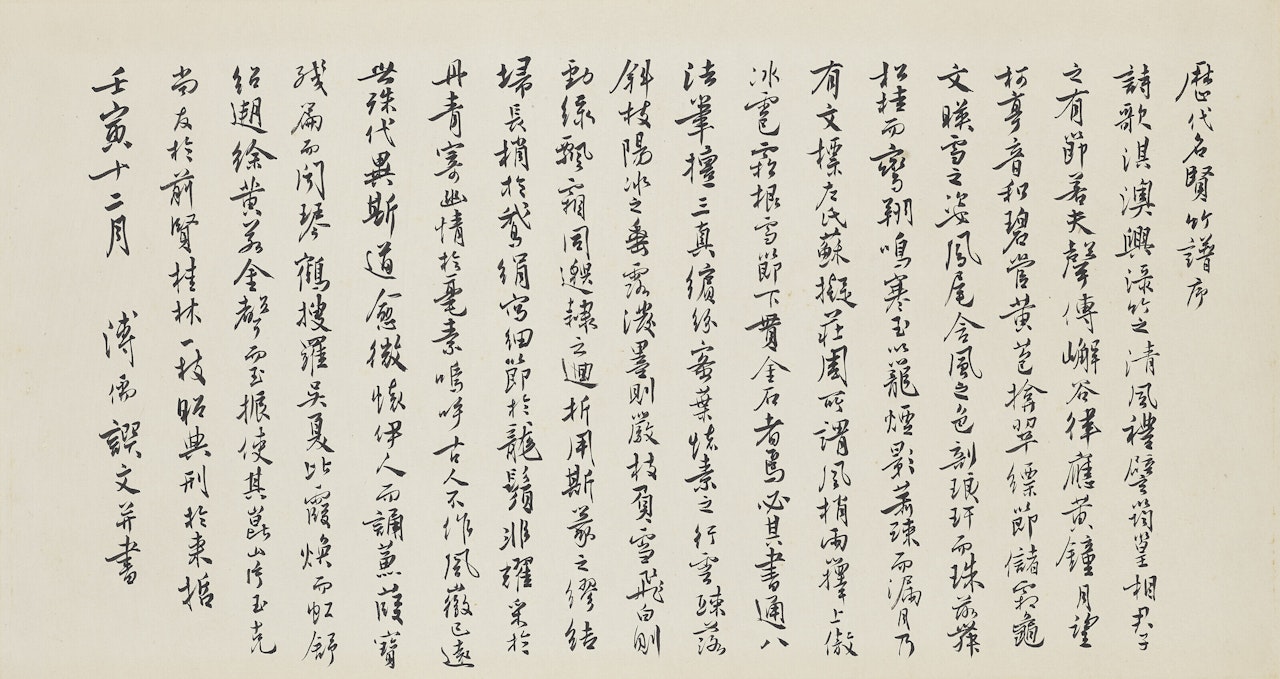 歷代名賢竹譜序
詩歌淇澳興淥竹之清風禮譬筠篁相君子
之有節若夫聲傳嶰谷律應黃鐘月望
柯亭音和碧管黃苞擒翠縹節儲霜龜
文暎雪之姿鳳尾含風之色剖琅玕而珠蕊舞
松桂而鸞翔鳴寒玉以籠煙影蕭疎而漏月乃
有文標左氏蘇擬莊周所謂風梢雨籜上傲
冰雹霜根雪節下貫金石者焉必其書通八
法筆擅三真繽紛密葉懷素之行雲疎落
斜枝陽冰之垂露潑墨則嚴枝負雪飛白則
勁綠飄霜同邈隸之迴折用斯篆之繆結
掃長梢於鵞絹寫細節於龍鬚非躍采於
丹青寄幽情於毫素嗚呼古人不作風徽已遠
世殊代異斯道愈微懷伊人而誦蒹葭寶
殘篇而閟琴鶴搜羅吳夏比霞煥而虹舒
紹遡徐黃若金聲而玉振使其崑山片玉克
尚友於前賢桂林一枝昭典刑於來哲
壬寅十二月 溥儒譔文并書